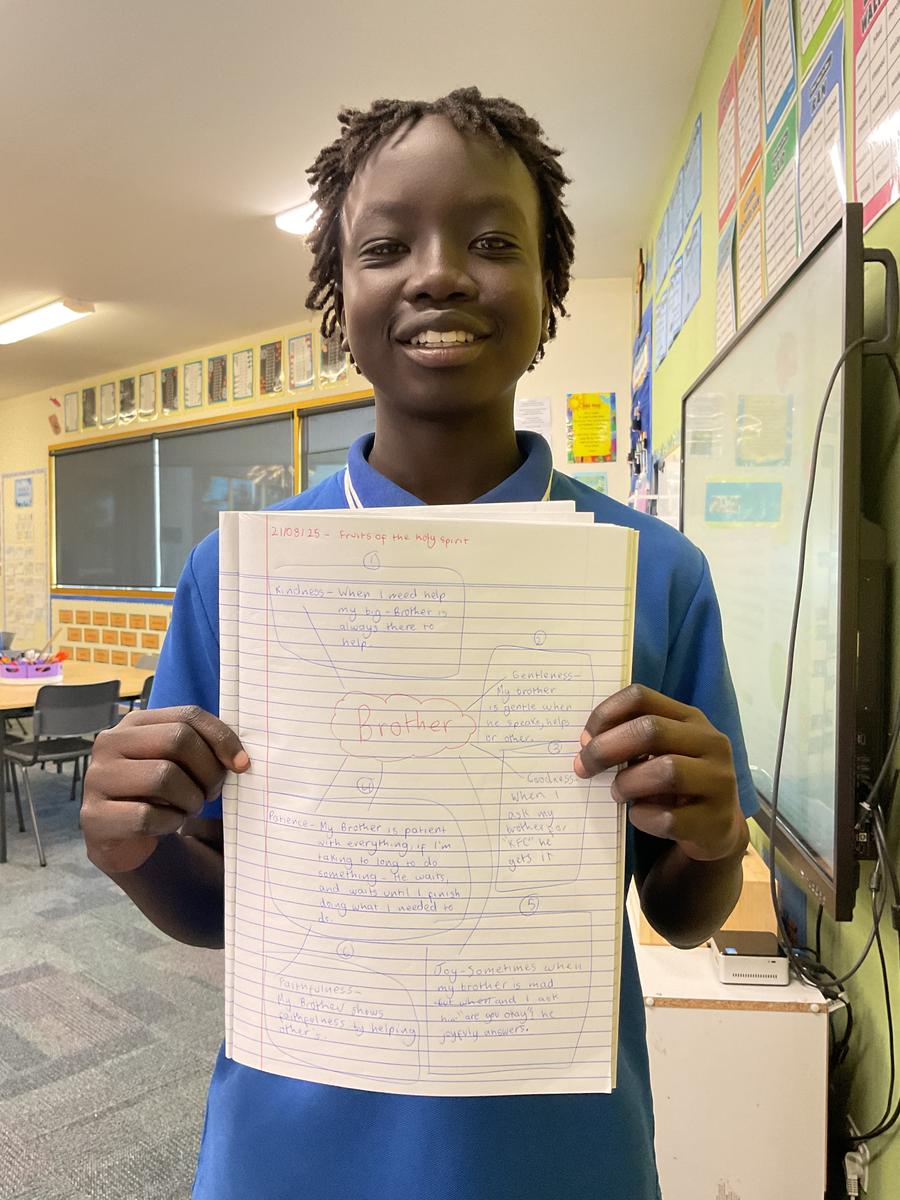 21/08/25 - Fruits of the holy spirit
①
Kindness - When I need help
my big - Brother is
always there to
help.
②
Gentleness -
My brother
is gentle when
he speaks, helps
or other.
Brother
③
Goodness -
When I
ask my
brother for
"KFC" he
gets it
④
Patience - My Brother is patient
with everything, if I'm
taking to long to do
something - He waits,
and waits until I finish
doing what I needed to
do.
⑤
Joy - Sometimes when
my brother is mad
but when and I ask
him "are you okay? he
joyfuly answers.
⑥
Faithfulness -
My Brother shows
faithfulness by helping
other's.